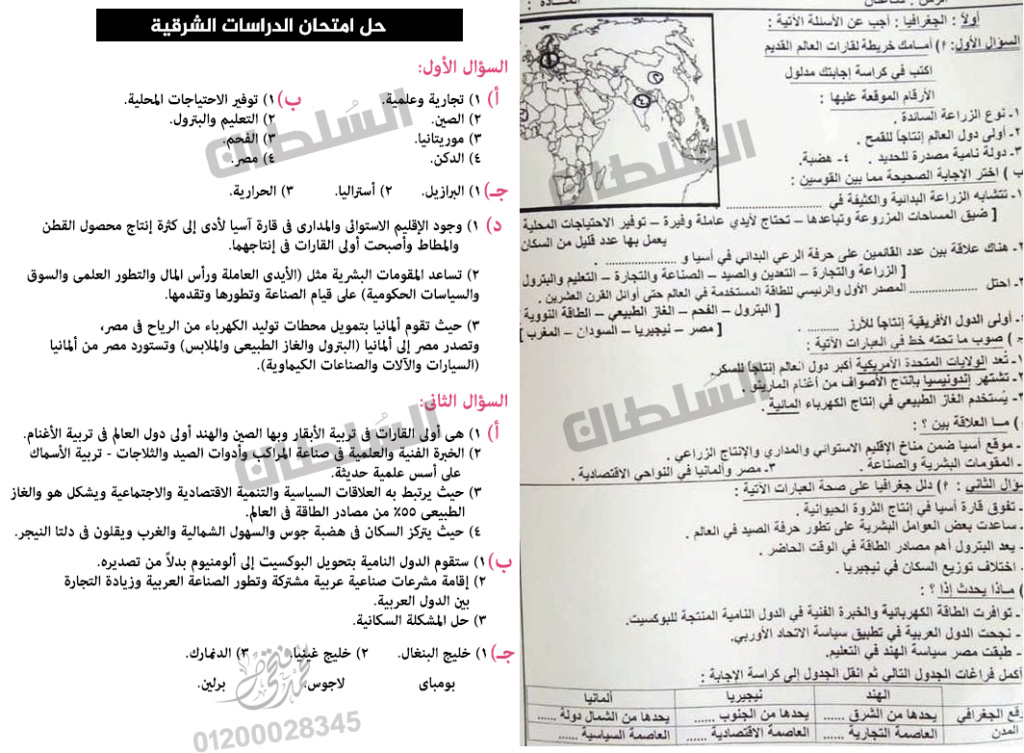 أولاً : الجغرافيا : أجب عن الأسئلة الآتية :
السؤال الأول: ٢) أمامك خريطة لقارات العالم القديم
اكتب في كراسة إجابتك مدلول
الأرقام الموقعة عليها :
١- نوع الزراعة السائدة .
٢- أولى دول العالم إنتاجاً للقمح .
٣- دولة نامية مصدرة للحديد . ٤- هضبة.
ب ) اختر الإجابة الصحيحة مما بين القوسين :
١- تتشابه الزراعة البدائية والكثيفة في ...............
[ ضيق المساحات المزروعة وتباعدها – تحتاج لأيدي عاملة وفيرة – توفير الاحتياجات المحلية
يعمل بها عدد قليل من السكان
٢- هناك علاقة بين عدد القائمين على حرفة الرعي البدائي في أسيا و ............... .
[ الزراعة والتجارة – التعدين والصيد – الصناعة والتجارة – التعليم والبترول
٣- احتل ............... المصدر الأول والرئيسي للطاقة المستخدمة في العالم حتى أوائل القرن العشرين .
[ البترول – الفحم – الغاز الطبيعي – الطاقة النووية
أولى الدول الأفريقية إنتاجاً للأرز ........... .
[ مصر – نيجيريا – السودان – المغرب ]
) صوب ما تحته خط في العبارات الآتية :
تُعد الولايات المتحدة الأمريكية أكبر دول العالم إنتاجاً للسكر.
تشتهر إندونيسيا بإنتاج الأصواف من أغنام المارينو .
٣- يُستخدم الغاز الطبيعي في إنتاج الكهرباء المائية .
) مـا العلاقة بين ؟ :
- موقع أسيا ضمن مناخ الإقليم الاستوائي والمداري والإنتاج الزراعي .
- المقومات البشرية والصناعة . ٣- مصر وألمانيا في النواحي الاقتصادية .
سؤال الثاني : ٢) دلل جغرافيا على صحة العبارات الآتية :
- تفوق قارة أسيا في إنتاج الثروة الحيوانية .
- ساعدت بعض العوامل البشرية على تطور حرفة الصيد في العالم .
- يعد البترول أهم مصادر الطاقة في الوقت الحاضر .
- اختلاف توزيع السكان في نيجيريا .
) مـاذا يحدث إذا ؟ :
- توافرت الطاقة الكهربائية والخبرة الفنية في الدول النامية المنتجة للبوكسيت.
- نجحت الدول العربية في تطبيق سياسة الاتحاد الأوربي.
- طبقت مصر سياسة الهند في التعليم.
أكمل فراغات الجدول التالي ثم انقل الجدول إلى كراسة الإجابة :
الهند نيجيريا ألمانيا
قع الجغرافي يحدها من الشرق ...... يحدها من الجنوب ...... يحدها من الشمال دولة ......
المدن العاصمة التجارية ...... العاصمة الاقتصادية ...... العاصمة السياسية ......
حل امتحان الدراسات الشرقية
السؤال الأول:
أ) ١) تجارية وعلمية. ب) ١) توفير الاحتياجات المحلية.
٢) الصين. ٢) التعليم والبترول.
٣) موريتانيا. ٣) الفحم.
٤) الدكن. ٤) مصر.
جـ) ١) البرازيل. ٢) أستراليا. ٣) الحرارية.
د) ١) وجود الإقليم الاستوائى والمدارى فى قارة آسيا لأدى إلى كثرة إنتاج محصول القطن
والمطاط وأصبحت أولى القارات فى إنتاجهما.
٢) تساعد المقومات البشرية مثل (الأيدى العاملة ورأس المال والتطور العلمى والسوق
والسياسات الحكومية) على قيام الصناعة وتطورها وتقدمها.
٣) حيث تقوم ألمانيا بتمويل محطات توليد الكهرباء من الرياح فى مصر،
وتصدر مصر إلى ألمانيا (البترول والغاز الطبيعى والملابس) وتستورد مصر من ألمانيا
(السيارات والآلات والصناعات الكيماوية).
السؤال الثانى:
أ) ١) هى أولى القارات فى تربية الأبقار وبها الصين والهند أولى دول العالم فى تربية الأغنام.
٢) الخبرة الفنية والعلمية فى صناعة المراكب وأدوات الصيد والثلاجات - تربية الأسماك
على أسس علمية حديثة.
٣) حيث يرتبط به العلاقات السياسية والتنمية الاقتصادية والاجتماعية ويشكل هو والغاز
الطبيعى ٥٥٪ من مصادر الطاقة فى العالم.
٤) حيث يتركز السكان فى هضبة جوس والسهول الشمالية والغرب ويقلون فى دلتا النيجر.
ب) ١) ستقوم الدول النامية بتحويل البوكسيت إلى ألومنيوم بدلاً من تصديره.
٢) إقامة مشرعات صناعية عربية مشتركة وتطور الصناعة العربية وزيادة التجارة
بين الدول العربية.
٣) حل المشكلة السكانية.
جـ) ١) خليج البنغال. ٢) خليج غينيا. ٣) الدنمارك.
بومباى لاجوس. برلين.
السلطان
السلطان
السلطان
السلطان
01200028345